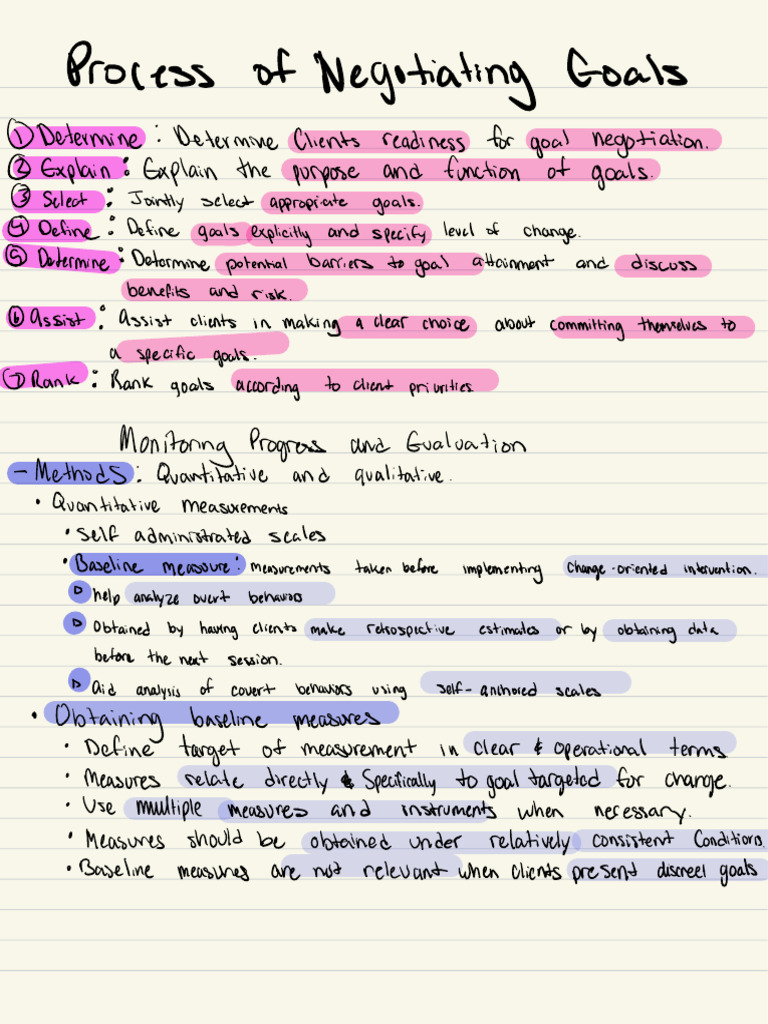 Process of Negotiating Goals
① Determine: Determine Clients readiness for goal negotiation.
② Explain: Explain the purpose and function of goals.
③ Select: Jointly select appropriate goals.
④ Define: Define goals explicitly and specify level of change.
⑤ Determine: Determine potential barriers to goal attainment and discuss
benefits and risk.
⑥ Assist: Assist clients in making a clear choice about committing themselves to
a specific goals.
⑦ Rank: Rank goals according to client priorities.
Monitoring Progress and Evaluation
- Methods: Quantitative and qualitative.
• Quantitative measurements
• Self administrated scales
• Baseline measure: measurements taken before implementing Change-oriented intervention.
▷ help analyze overt behaviors
▷ Obtained by having clients make retrospective estimates or by obtaining data
before the next session.
▷ Aid analysis of covert behaviors using self-anchored scales
• Obtaining baseline measures
• Define target of measurement in clear & operational terms
• Measures relate directly & Specifically to goal targeted for change.
• Use multiple measures and instruments when necessary.
• Measures should be obtained under relatively consistent Conditions.
• Baseline measures are not relevant when clients present discreet goals